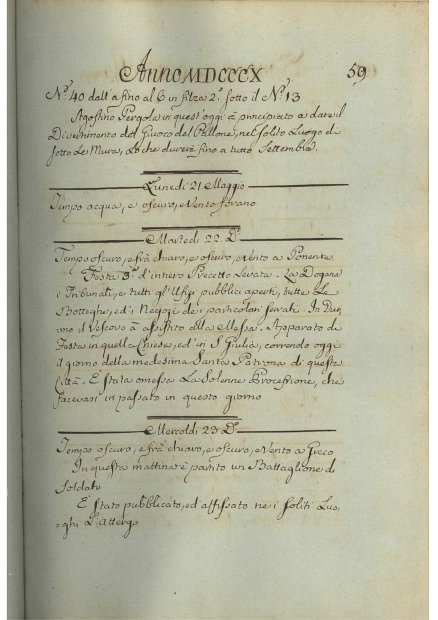 Anno MDCCCX 59
N.° 40 dall' a fino al 6 in filza 2.ª sotto il N.° 13
Agostino Pergola in quest'oggi à principiato a dare il
Divertimento del Giuoco del Pallone, nel solito Luogo di
sotto Le Mura, Lo che durerà fino a tutto Settembre
Lunedi 21 Maggio
Tempo acqua, e oscuro, Vento forano
Martedi 22 D.°
Tempo oscuro, e frà chiaro, e oscuro, e Vento a Ponente
Festa d'intiero Precetto Levata - La Dogana
i Tribunali, e tutti gl'Ufizj pubblici aperti, tutte Le
Botteghe, ed i Negozj dei particolari serrati. In Duo,,
mo il Vescovo à assistito alla Messa. Apparato di
Festa in quella Chiesa, ed in S. Giulia, correndo oggi
il giorno della medesima Santa Patrona di questa
Città. È stata omessa La Solenne Processione, che
facevasi in passato in questo giorno
Mercoldi 23 D.°
Tempo oscuro, e frà chiaro, e oscuro, e Vento a Greco
In questa mattina è partito un Battaglione di
Soldati
È stato pubblicato, ed affissato nei soliti Luo,,
,,ghi L'attergo